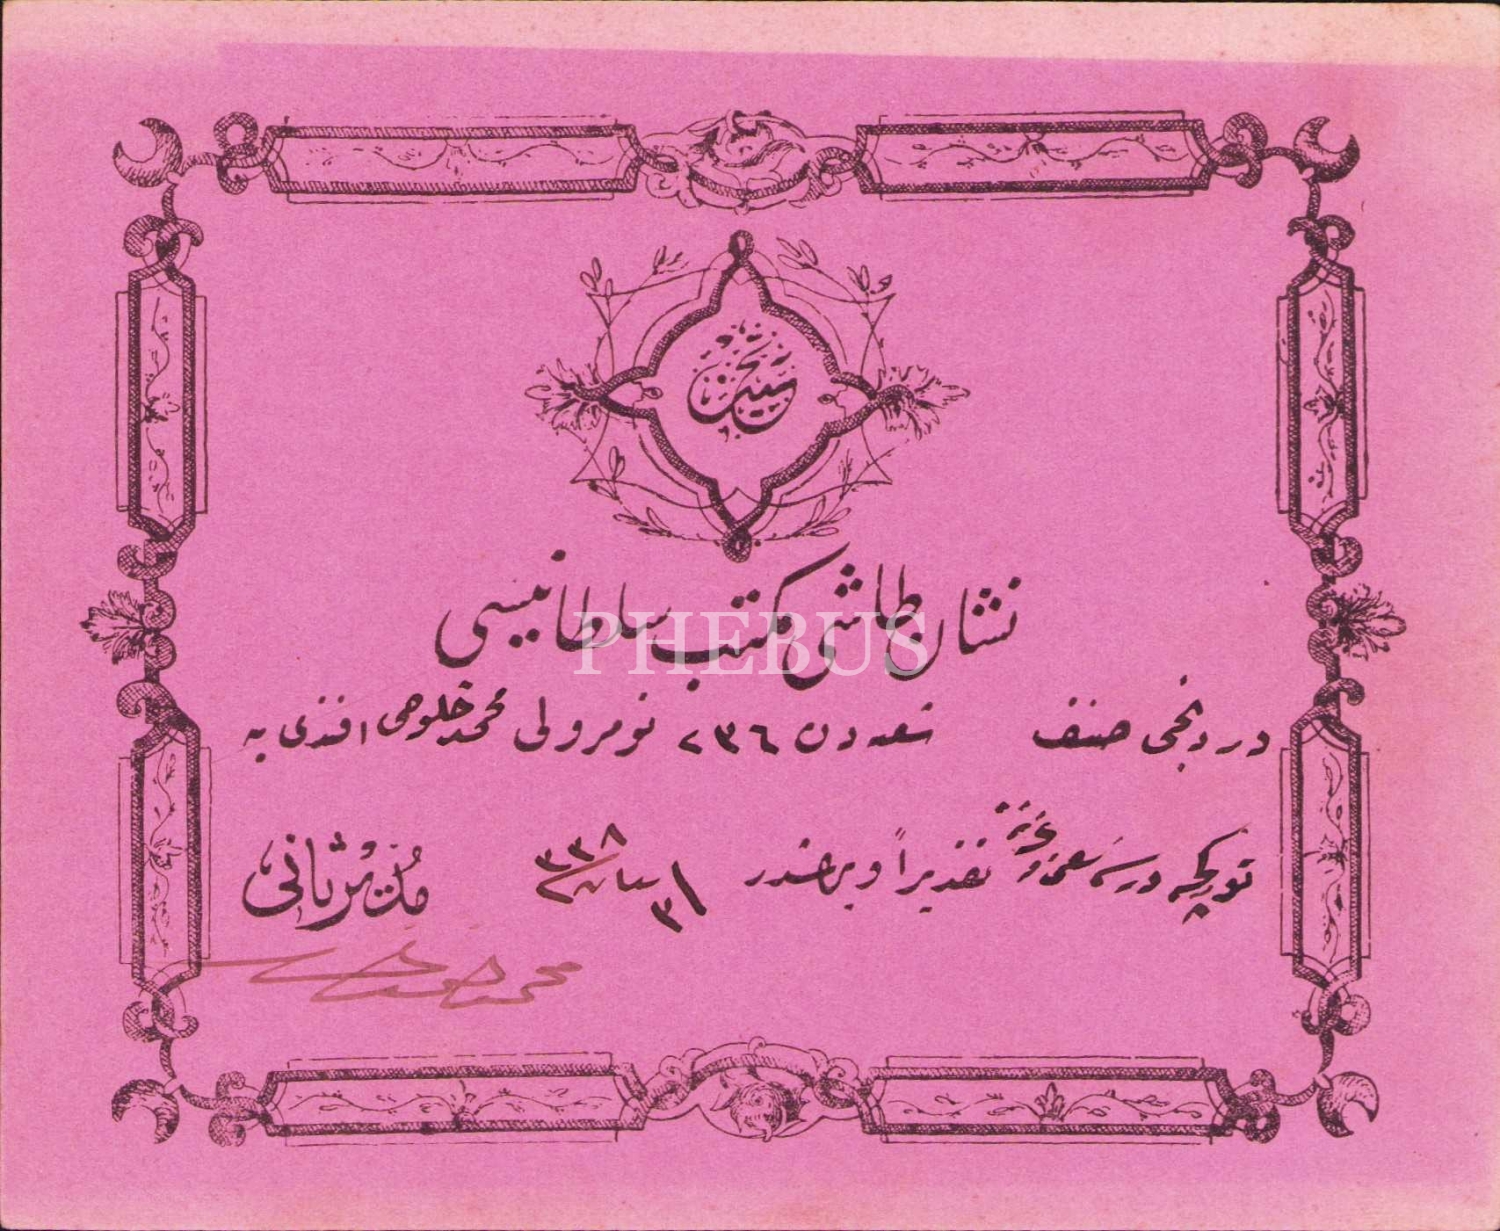 تحسین
نشان طاشی مکتب سلطانیسی
دردنجی صنف شعبه‌دن ٢٣٦ نومرولی محمد خلوصی افندی یه
تورکجه درسنه سعی و غیرتنه تقدیراً ویرلمشدر ٣١ نیسان ٣٣٨
مدیر ثانی
PHEBUS